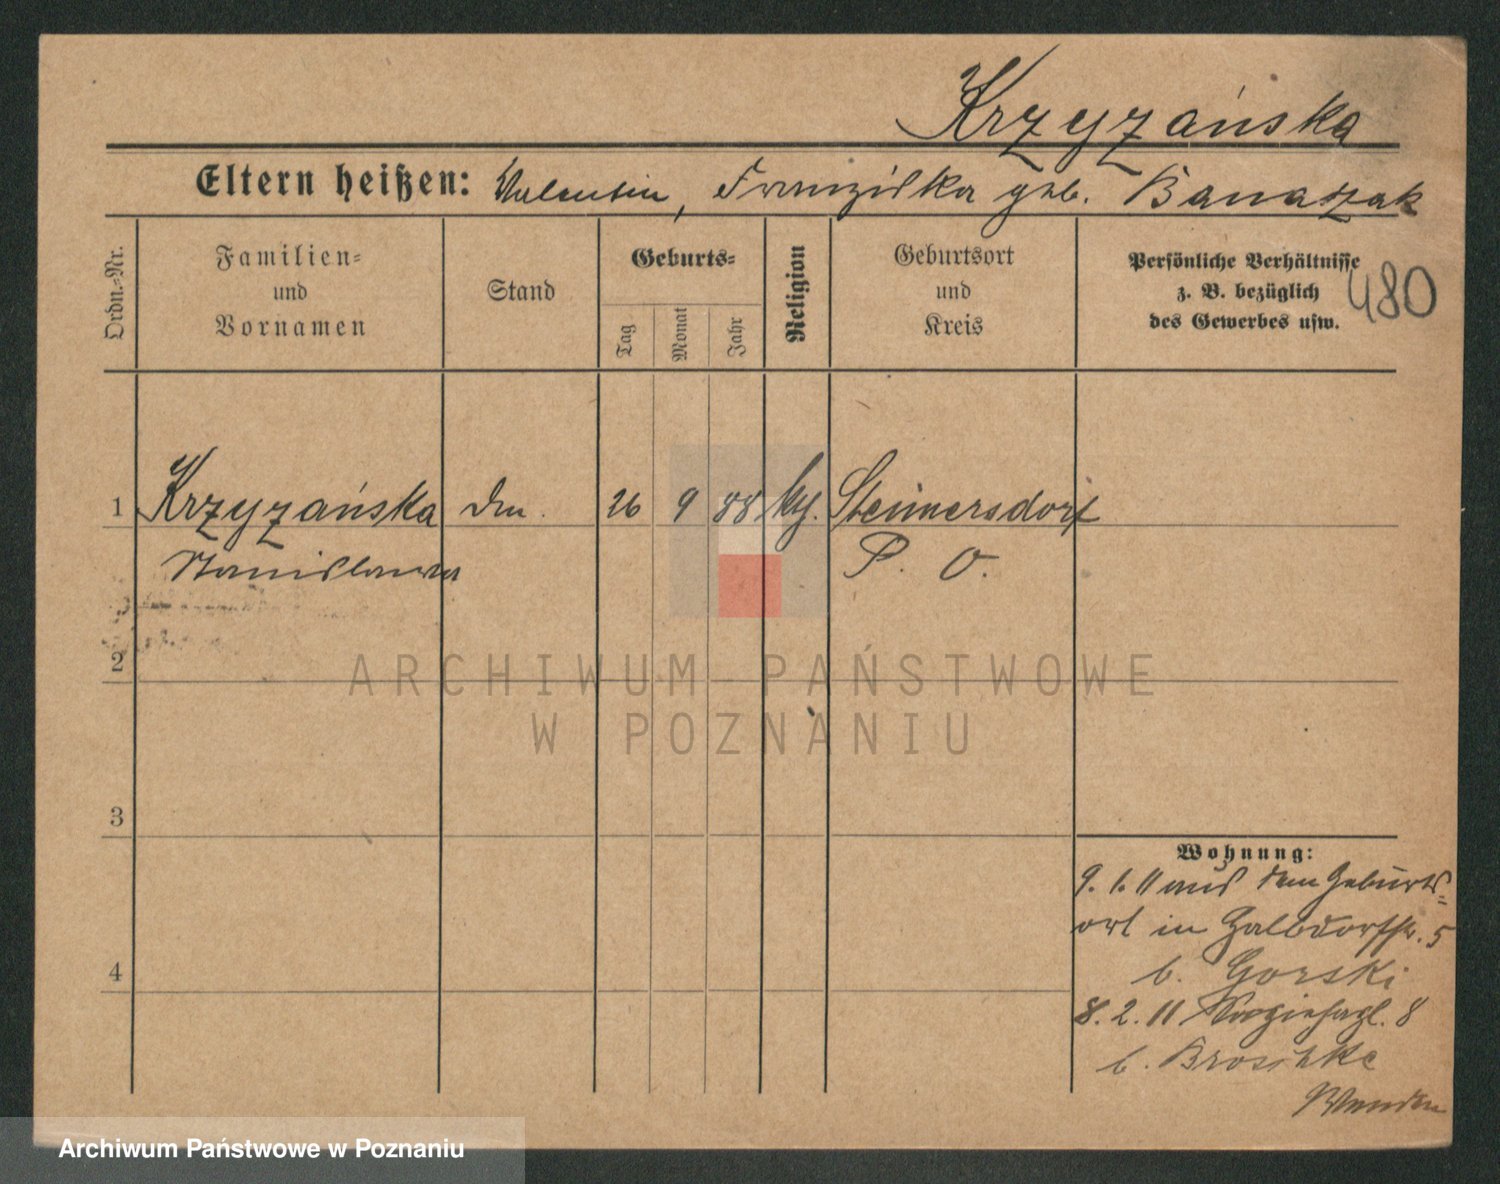 Krzyżańska
Eltern heißen: Valentin, Franziska geb. Banaszak
Ordn.-Nr.
Familien-
und
Vornamen
Stand
Geburts-
Tag
Monat
Jahr
Religion
Geburtsort
und
Kreis
Persönliche Verhältnisse
z. B. bezüglich
des Gewerbes usw.
480
1 Krzyżańska 26 9 88 Steimersdorf
Stanislawa P. O.
2
3
4
Wohnung:
9. 1. 11 aus dem Geburts=
ort in 5
b. Gorski
8. 2. 11 8
b. Broschke
ARCHIWUM PAŃSTWOWE
W POZNANIU
Archiwum Państwowe w Poznaniu